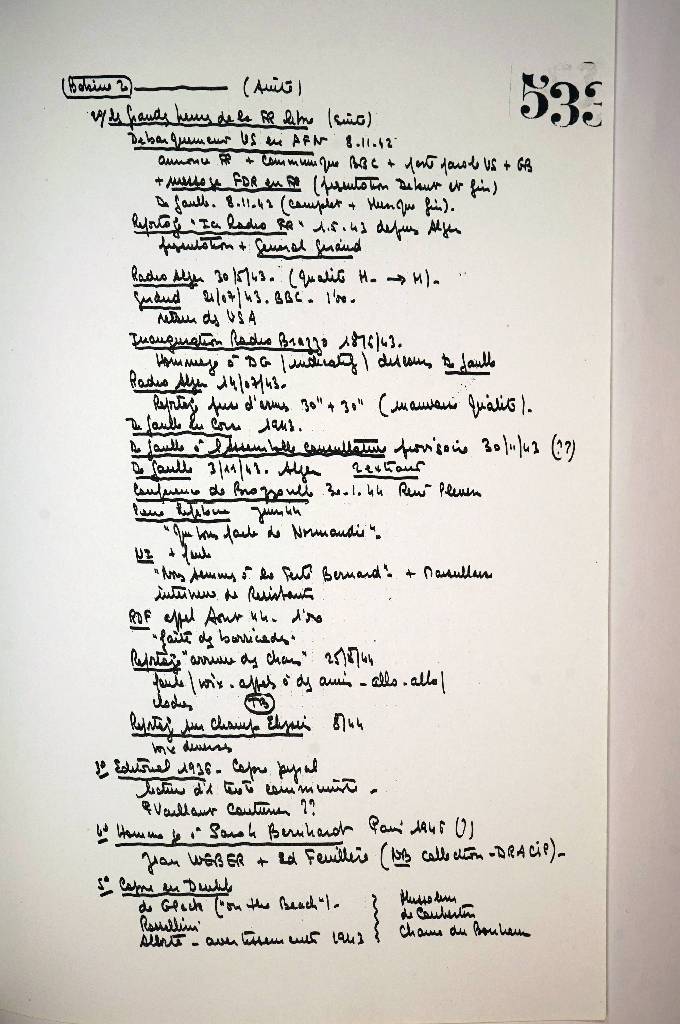 533
(Bobine 2) (Suite)
2º/ les Grandes heures de la FR libre (suite)
Debarquement US en AFN 8.11.42
annonce FR + communiqué BBC + porte parole US + GB
+ message FDR en FR (presentation Debut et fin)
De Gaulle. 8.11.42 (complet + manque fin).
Reportage "Ici Radio FR" 1.5.43 depuis Alger
presentation + General Giraud
Radio Alger 30/5/43. (Qualité M. → M).
Giraud 21/07/43. BBC. 1'00.
retour des USA
Inauguration Radio Brazza 18/6/43.
Hommage à DG (indicatif) discours De Gaulle
Radio Alger 14/07/43.
Reportage prise d'armes 30" + 30" (mauvaise Qualité).
De Gaulle en Corse 1943.
De Gaulle à l'Assemblée consultative provisoire 30/11/43 (??)
De Gaulle 3/11/43. Alger 2 extraits
Conférence de Brazzaville 30.1.44 René Pleven
Pierre Lefebvre Juin 44
de Normandie".
+
"Nous sommes à la Ferté Bernard". + Marseillaise
interview de Resistants
RDF appel Aout 44. 1'00
"faites des barricades"
Reportage "arrivée des chars" 25/8/44
voix. appels à des amis - allo. allo
cloches (TB)
Reportage sur Champs Elysées 8/44
voix diverses
3º Editorial 1936.
lecture d'1 texte communiste.
P Vaillant Couturier ??
4º Hommage à Sarah Bernhardt Paris 1945 (?)
Jean WEBER + Ed Feuillère (NB collection - DRACIP).
5º Copie en Double
de Gregory Peck ("on the Beach"). Mussolini
Rossellini de Coubertin
Alerte - avertissements 1943 Chaine du Bonheur